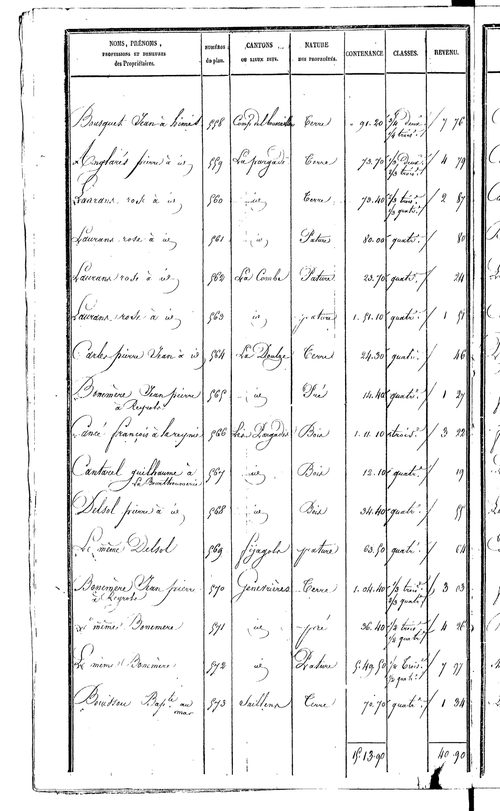 NOMS, PRÉNOMS, PROFESSIONS ET DEMEURES des Propriétaires. NUMÉROS du plan. CANTONS OU LIEUX DITS. NATURE DES PROPRIÉTÉS. CONTENANCE. CLASSES. REVENU.
Bousquet Jean à 558 Terre 91.20 7 76
Anglarès pierre à id 559 La pargade Terre 73.70 4 79
Laurans rose à id 560 id Terre 73.40 2 87
Laurans rose à id 561 id Pature 80.00 quatr. 80
Laurans rose à id 562 La Combe Pature 23.70 quatr. 24
Laurans rose à id 563 id pature 1.51.10 quatr. 1 51
Carles pierre Jean à id 564 Terre 24.30 quatr. 46
Bonemère Jean pierre à Peyrots 565 id Pré 14.40 quatr. 1 27
Cancé françois à 566 Les Pargades Bois 1.11.10 trois. 3 22
Cantarel guilhaume à 567 id Bois 12.10 quatr. 19
Delsol pierre à id 568 id Bois 34.40 quatr. 55
Le même Delsol 569 pature 63.50 quatr. 64
Bonemère Jean pierre à Peyrots 570 Genevières Terre 1.04.40 1/3 trois. 2/3 quatr. 3 03
Le même Bonemère 571 id pré 36.40 1/2 trois. 1/2 quatr. 4 26
Le même Bonemère 572 id Pature 5.49.50 1/2 trois. 1/2 quatr. 7 77
Bouissou Bapte au mas 573 Saillens Terre 70.70 quatr. 1 34
15.13.90 40.90